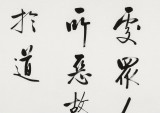 處眾人
所惡故
於道